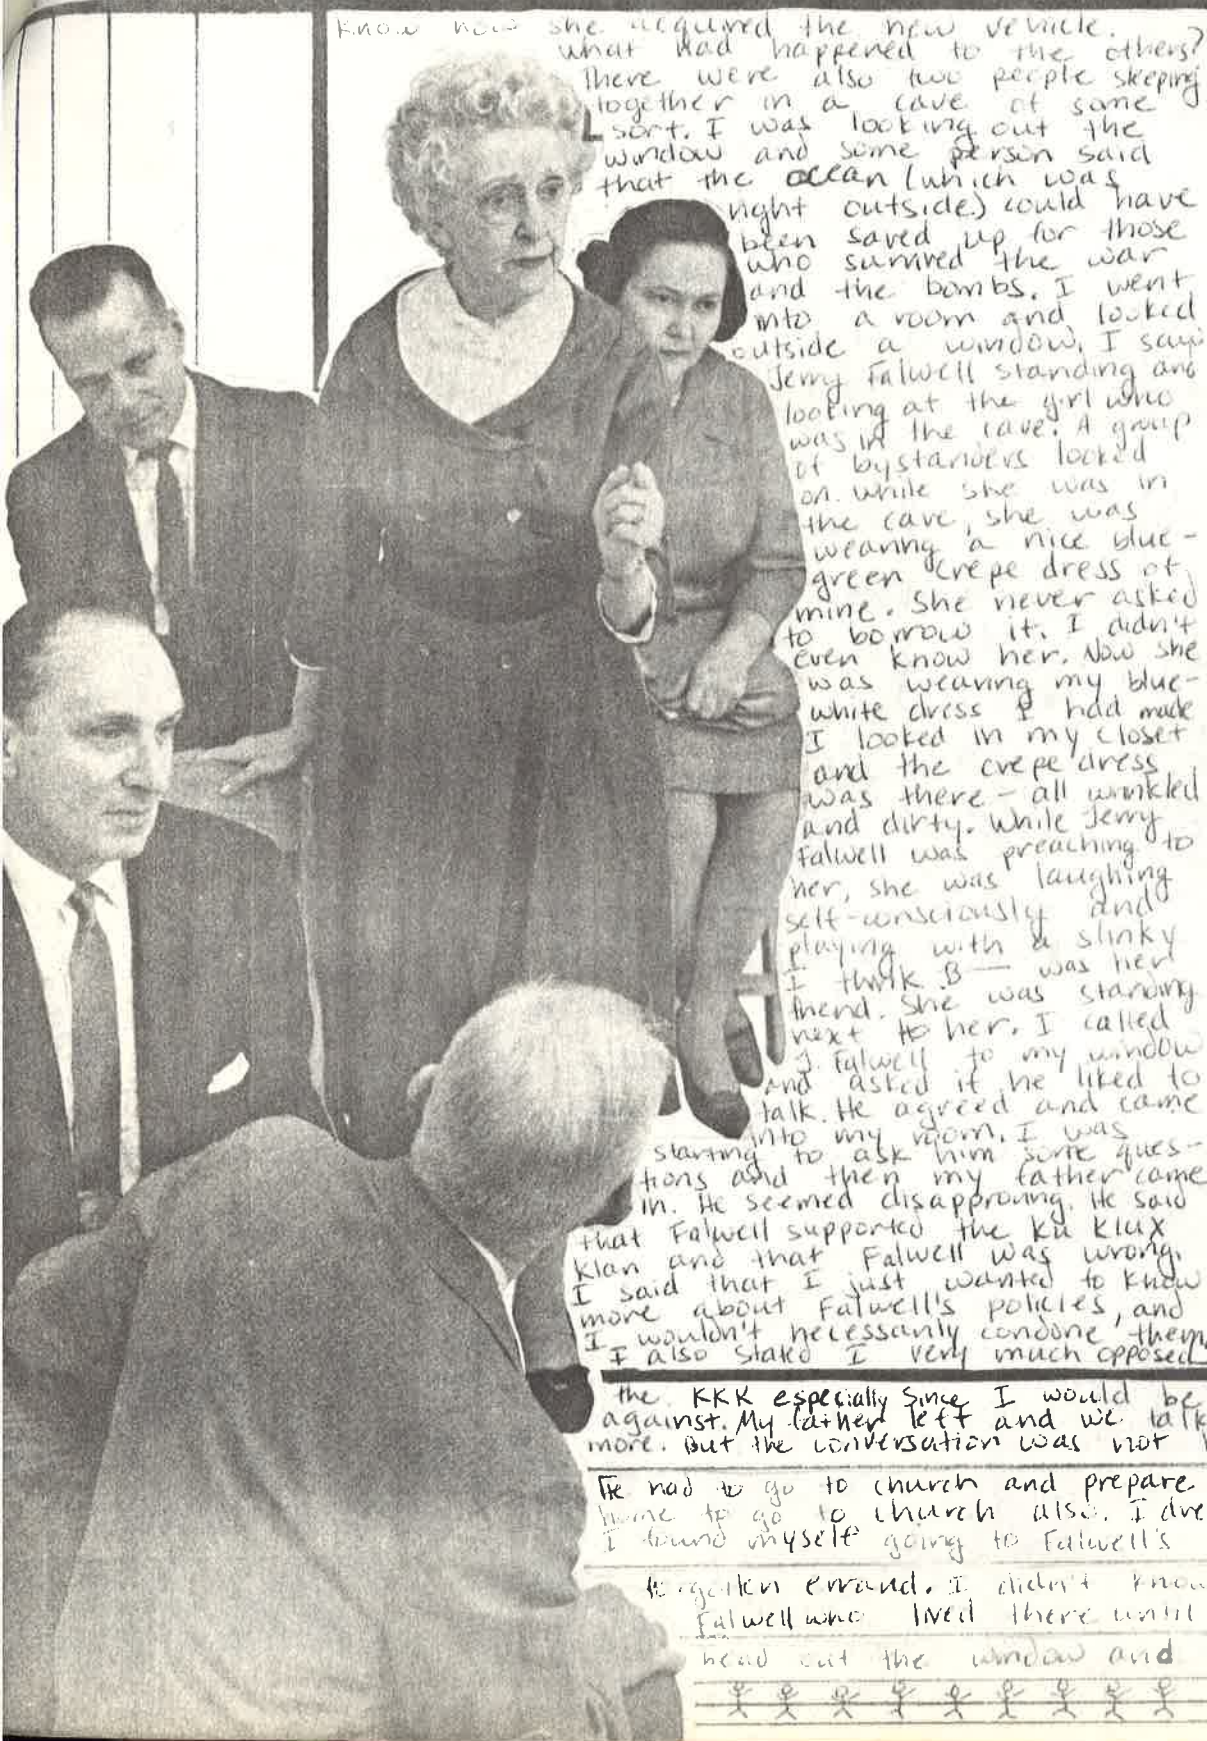 Know how she acquired the new vehicle.
what had happened to the others?
There were also two people sleeping
together in a cave of some
sort. I was looking out the
window and some person said
that the ocean (which was
right outside) could have
been saved up for those
who survived the war
and the bombs. I went
into a room and looked
outside a window. I saw
Jerry Falwell standing and
looking at the girl who
was in the cave. A group
of bystanders looked
on. while she was in
the cave, she was
wearing a nice blue-
green crepe dress of
mine. She never asked
to borrow it. I didn't
even know her. Now she
was wearing my blue-
white dress I had made
I looked in my closet
and the crepe dress
was there - all wrinkled
and dirty. While Jerry
Falwell was preaching to
her, she was laughing
self-consciously and
playing with a slinky
I think B— was her
friend. She was standing
next to her. I called
J. Falwell to my window
and asked if he liked to
talk. He agreed and came
into my room. I was
starting to ask him some ques-
tions and then my father came
in. He seemed disapproving. He said
that Falwell supported the Ku Klux
Klan and that Falwell was wrong.
I said that I just wanted to know
more about Falwell's policies, and
I wouldn't necessarily condone them.
I also stated I very much opposed
the KKK especially since I would be
against. My father left and we talk
more. But the conversation was not
He had to go to church and prepare
home to go to church also. I dre
I found myself going to Falwell's
forgotten errand. I didn't know
Falwell who lived there until
head out the window and